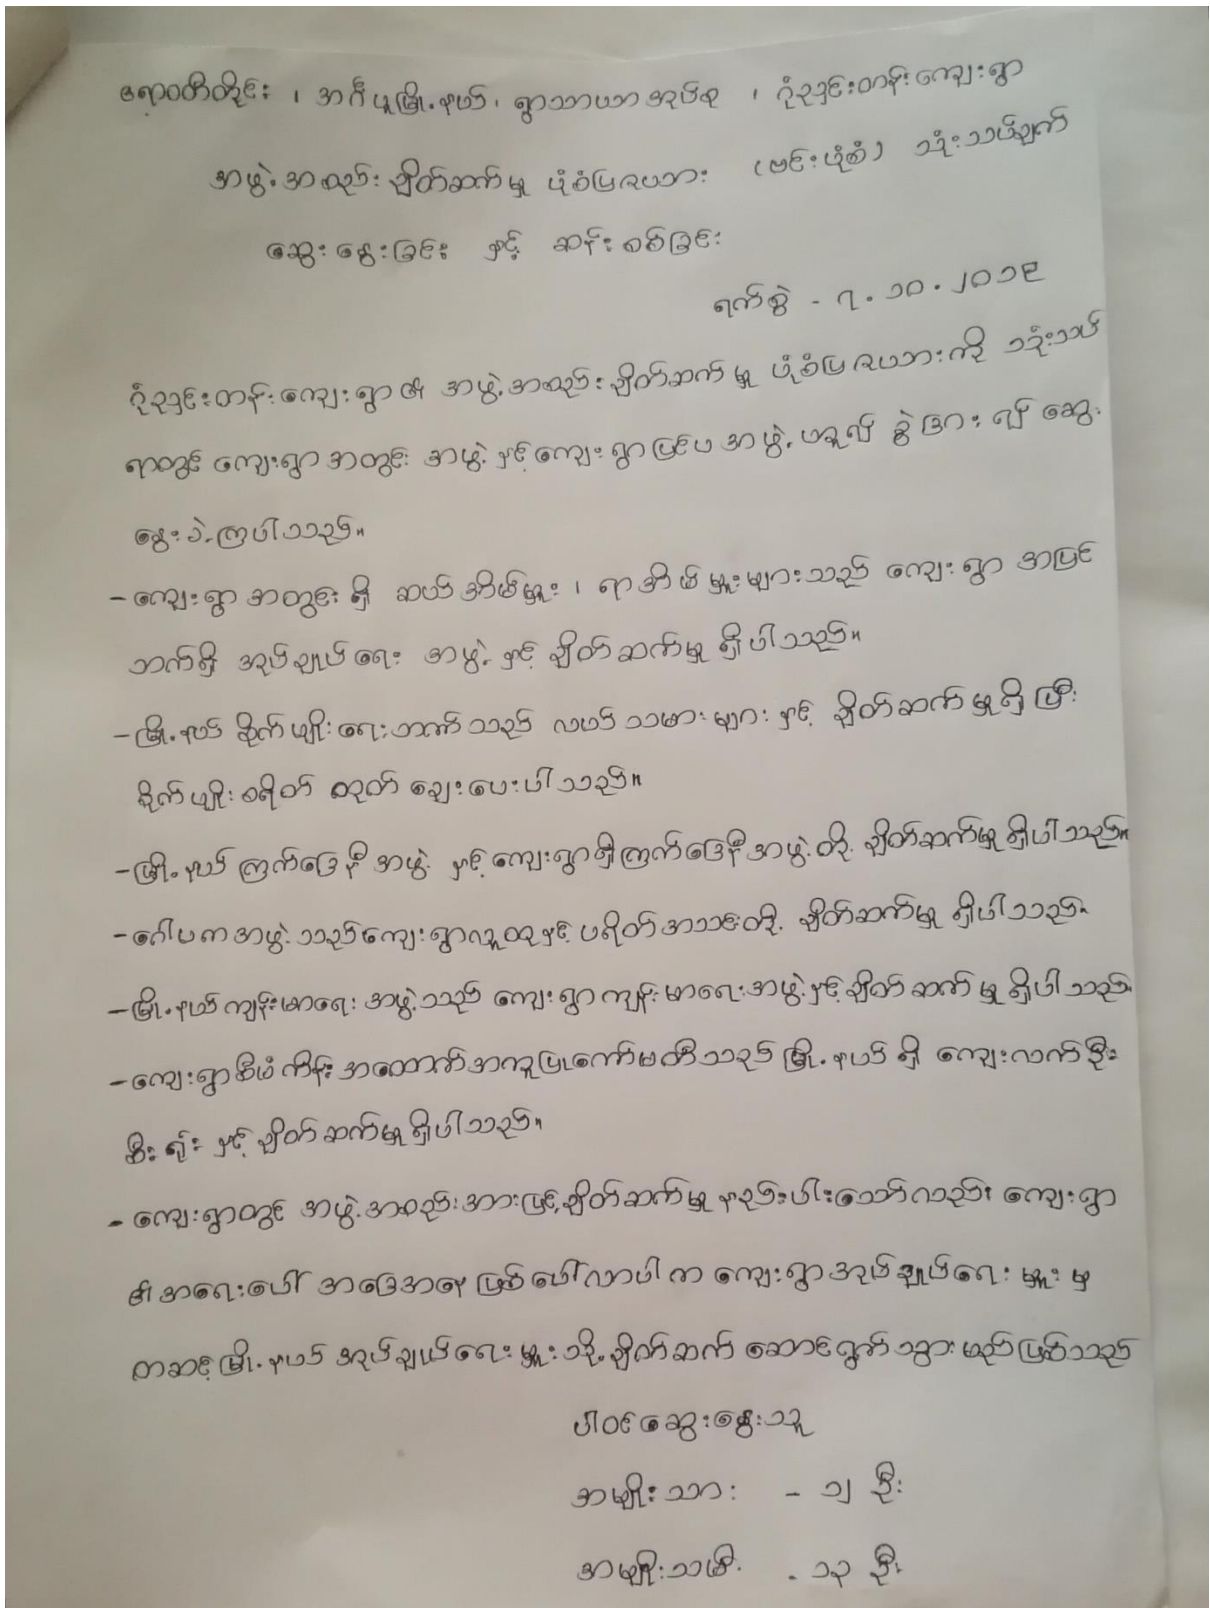 ဧရာဝတီတိုင်း ၊ အင်္ဂပူမြို့နယ်၊ ရွာသာယာအုပ်စု ၊ ဂုံညှင်းတန်းကျေးရွာ
အဖွဲ့အစည်း ချိတ်ဆက်မှု ပုံစံပြဇယား (ဗင်းပုံစံ) သုံးသပ်ချက်
ဆွေးနွေးခြင်း နှင့် ဆန်းစစ်ခြင်း
ရက်စွဲ - ၇.၁၀.၂၀၁၉
ဂုံညှင်းတန်းကျေးရွာ၏ အဖွဲ့အစည်းချိတ်ဆက်မှု ပုံစံပြဇယားကို သုံးသပ်
ရာတွင် ကျေးရွာအတွင်း အဖွဲ့ နှင့် ကျေးရွာပြင်ပအဖွဲ့ ဟူ၍ ခွဲခြား၍ ဆွေး
နွေးခဲ့ကြပါသည်။
- ကျေးရွာအတွင်းရှိ ဆယ်အိမ်မှူး ၊ ရာအိမ်မှူးများသည် ကျေးရွာ အပြင်
ဘက်ရှိ အုပ်ချုပ်ရေး အဖွဲ့ နှင့် ချိတ်ဆက်မှု ရှိပါသည်။
- မြို့နယ် စိုက်ပျိုးရေးဘဏ်သည် လယ်သမားများ နှင့် ချိတ်ဆက်မှုရှိပြီး
စိုက်ပျိုးစရိတ် ထုတ်ချေးပေးပါသည်။
- မြို့နယ်ကြက်ခြေနီအဖွဲ့ နှင့် ကျေးရွာရှိကြက်ခြေနီအဖွဲ့တို့ ချိတ်ဆက်မှုရှိပါသည်။
- ဂေါပကအဖွဲ့သည် ကျေးရွာလူထုနှင့် ပရိတ်အသင်းတို့ ချိတ်ဆက်မှု ရှိပါသည်။
- မြို့နယ်ကျန်းမာရေး အဖွဲ့သည် ကျေးရွာကျန်းမာရေးအဖွဲ့နှင့် ချိတ်ဆက်မှု ရှိပါသည်။
- ကျေးရွာစီမံကိန်းအထောက်အကူပြုကော်မတီသည် မြို့နယ်ရှိ ကျေးလက်ဦး
စီးရုံး နှင့် ချိတ်ဆက်မှုရှိပါသည်။
- ကျေးရွာတွင် အဖွဲ့အစည်းအားဖြင့် ချိတ်ဆက်မှု နည်းပါးသော်လည်း ကျေးရွာ
၏ အရေးပေါ် အခြေအနေ ဖြစ်ပေါ်လာပါက ကျေးရွာအုပ်ချုပ်ရေးမှူးမှ
တဆင့် မြို့နယ်အုပ်ချုပ်ရေးမှူးသို့ ချိတ်ဆက် ဆောင်ရွက်သွားမည်ဖြစ်သည်
ပါဝင်ဆွေးနွေးသူ
အမျိုးသား - ၁၂ ဦး
အမျိုးသမီး - ၁၃ ဦး